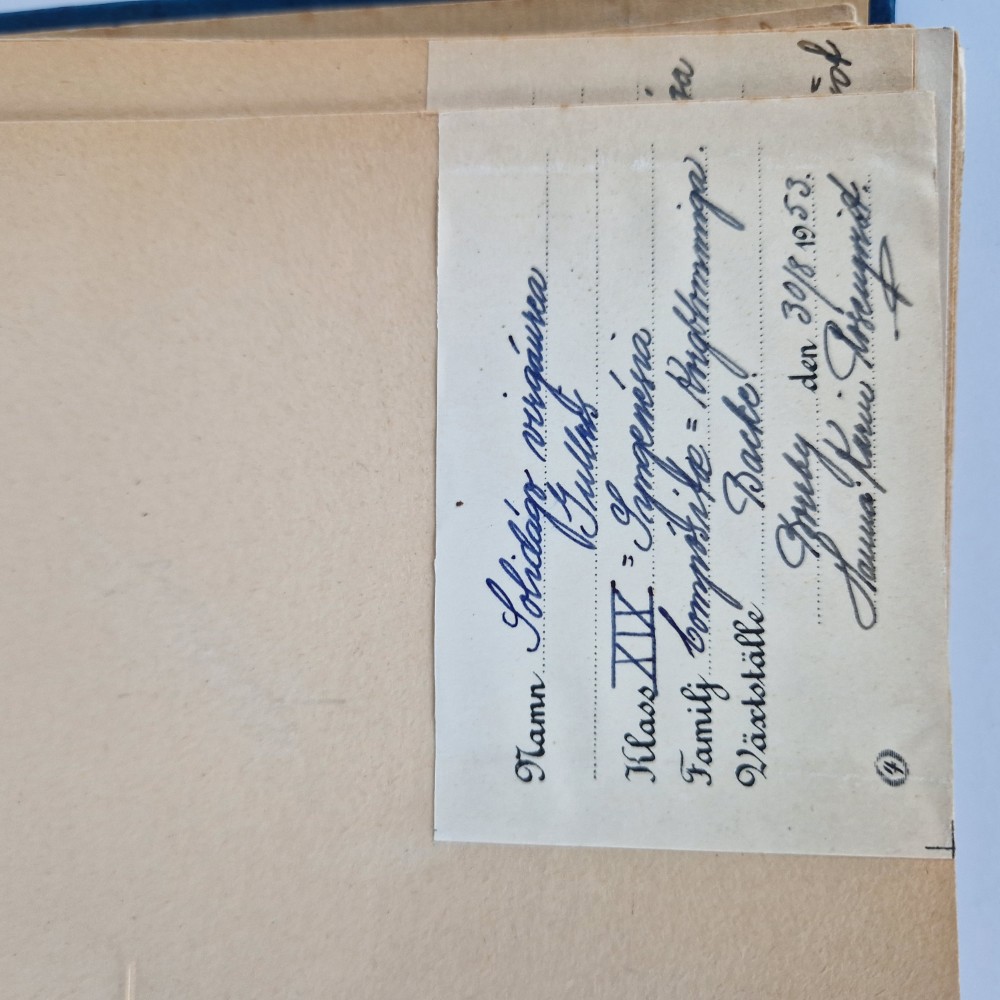 Namn Solidágo virgáurea
Gullris
Klass XIX = Syngenésia
Familj Compósitæ = Korgblommiga.
Växtställe Backe.
Broby den 30/8 1953.
Hanna Karin Rosenqvist.
4
za